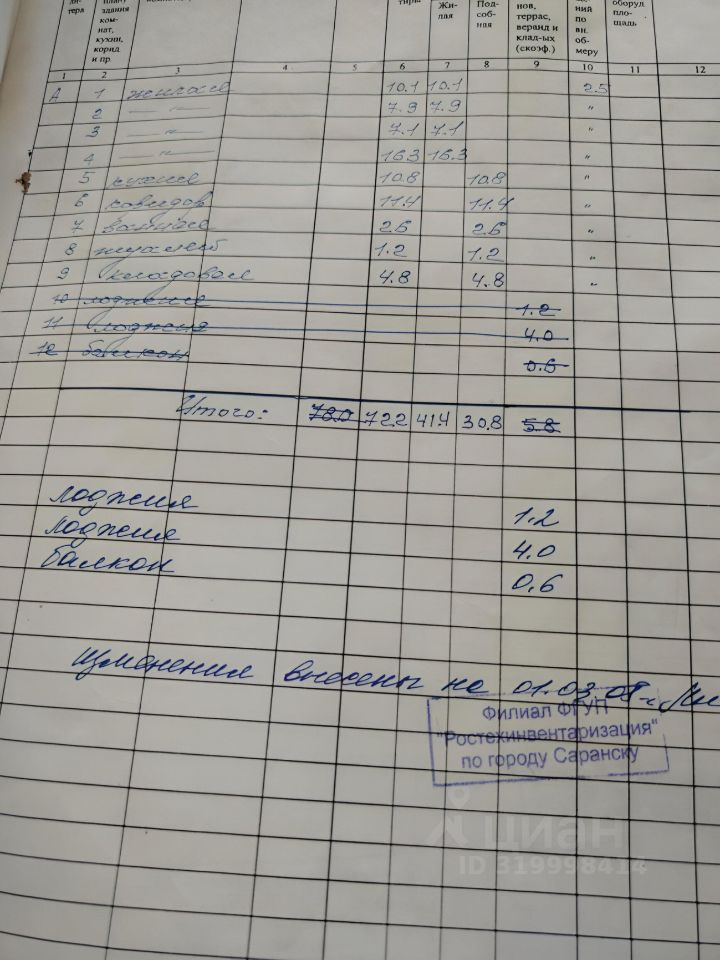 ли-
тера
плану
здания
ком-
нат,
кухни,
корид
и пр.
Жи-
лая
Под-
соб-
ная
нов,
террас,
веранд и
клад-ых
(с коэф.)
ний
по
вн.
об-
меру
оборуд
пло-
щадь
1 2 3 4 5 6 7 8 9 10 11 12
А 1 жилая 10.1 10.1 2.5
2 —"— 7.9 7.9 "
3 —"— 7.1 7.1 "
4 —"— 16.3 16.3 "
5 кухня 10.8 10.8 "
6 коридор 11.4 11.4 "
7 ванная 2.6 2.6 "
8 туалет 1.2 1.2 "
9 кладовая 4.8 4.8 "
10 лоджия 1.2
11 лоджия 4.0
12 балкон 0.6
Итого: 78.0 72.2 41.4 30.8 5.8
лоджия 1.2
лоджия 4.0
балкон 0.6
Изменения внесены на 01.03.08г.
Филиал ФГУП
"Ростехинвентаризация"
по городу Саранску
циан
ID 319998414